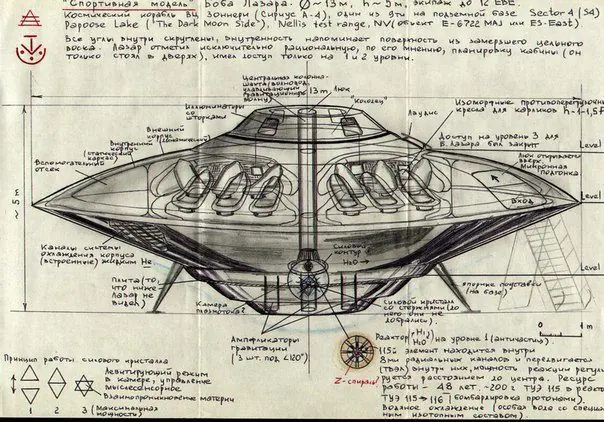 "Спортивная модель" Боба Лазара. Ø ~13 м, h ~ 5 м, экипаж до 12 ЕВЕ.
Космический корабль ВЦ Зонвери (Сириус А-4), один из 9ти на подземной базе Sector 4 (S4)
Papoose Lake ("The Dark Moon Side"), Nellis test range, NV (объект E-6722 MAJ или ES-East)
Все углы внутри скруглены, внутренность напоминает поверхность из замерзшего цельного
воска. Лазар отметил исключительно рациональную, по его мнению, планировку кабины (он
только стоял в дверях), имел доступ только на 1 и 2 уровни.
Центральная колонна-
шахта/волновод,
улавливающий
гравитационную
волну
Люк
13 m
"Колодец"
Иллюминаторы
со
шторками
Внешний
корпус
(динамический)
Внутренний
корпус
(статический
каркас)
Вспомогательный
отсек
Изоморфные противоперегрузочные
кресла для карликов h~1-1,5 м
Лаудис
Доступ на уровень 3 для
Б. Лазара был закрыт
Level
Люк открывается
вверх.
Микронная
подгонка
Level
Вход
Level
~5 м
Каналы системы
охлаждения корпуса
(встроенные) жидким He
Силовой
контур
H₂O
Плита (то,
что ниже
Лазар не
видел)
Камера
Опорные подставки
(на базе)
Силовой кристалл
со стержнями (до
него они не
добрались).
Амплификаторы
гравитации
(3 шт. под ∠120°)
Z-спираль
0 1 m
Реактор на уровне 1 (античастиц)
115й элемент находится внутри
8ми радиальных каналов и передвигается
(твэл) внутри них, мощность реакции регули-
руется расстоянием до центра. Ресурс
работы ~ 48 лет, ~200 г ТУЭ 115 в реакто
ТУЭ 115 → 116 (бомбардировка протонами).
Водяное охлаждение (особая вода со специаль
ным изотопным составом).
Принцип работы силового кристалла
Левитирующий режим
в камере, управление
мыслесенсорное
Взаимопроникновение материи
1 2 3 (Максимальная
мощность)